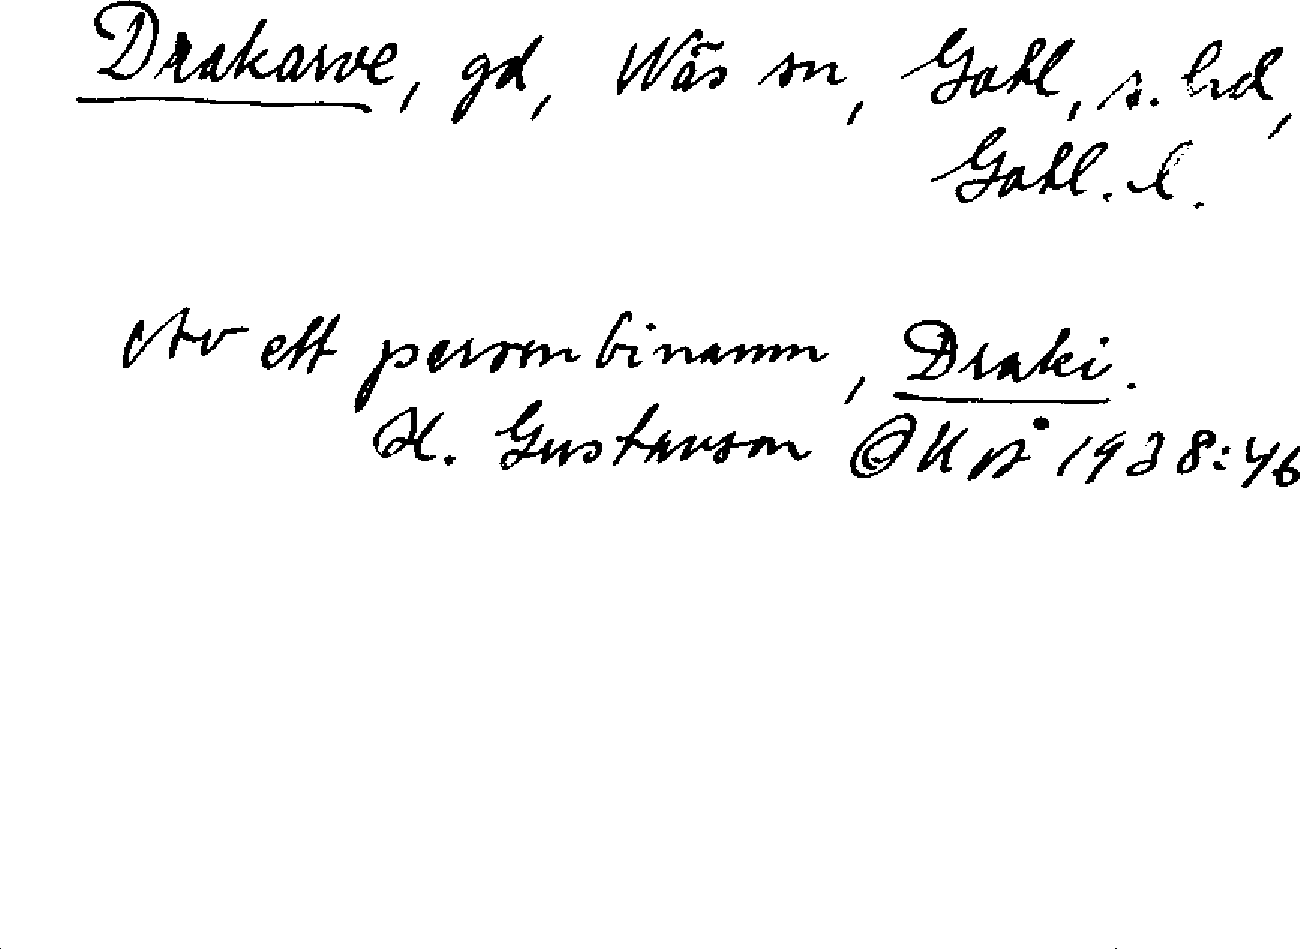 Drakarve, gd, Näs sn, Gotl, s. hd,
Gotl. l.
Av ett personbinamn, Draki.
H. Gustavson GKÅ 1938:46